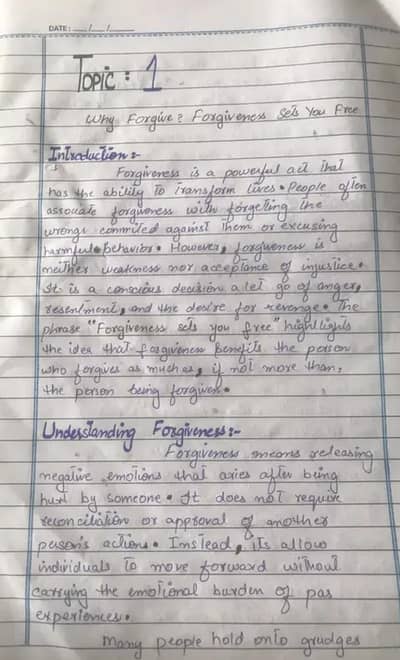 DATE: __/__/__
Topic : 1
Why Forgive? Forgiveness Sets You Free
Introduction:-
Forgiveness is a powerful act that
has the ability to transform lives. People often
associate forgiveness with forgetting the
wrongs commited against them or excusing
harmful behavior. However, forgiveness is
neither weakness nor acceptance of injustice.
It is a conscious decision a let go of anger,
resentment, and the desire for revenge. The
phrase "Forgiveness sets you free" highlights
the idea that forgiveness benefits the person
who forgives as much as, if not more than,
the person being forgiven.
Understanding Forgiveness:-
Forgiveness means releasing
negative emotions that axies after being
hurt by someone. It does not require
reconciliation or approval of anothер
person's actions. Instead, its allow
individuals to move forward without
carrying the emotional burden of pas
experiences.
Many people hold onto grudges